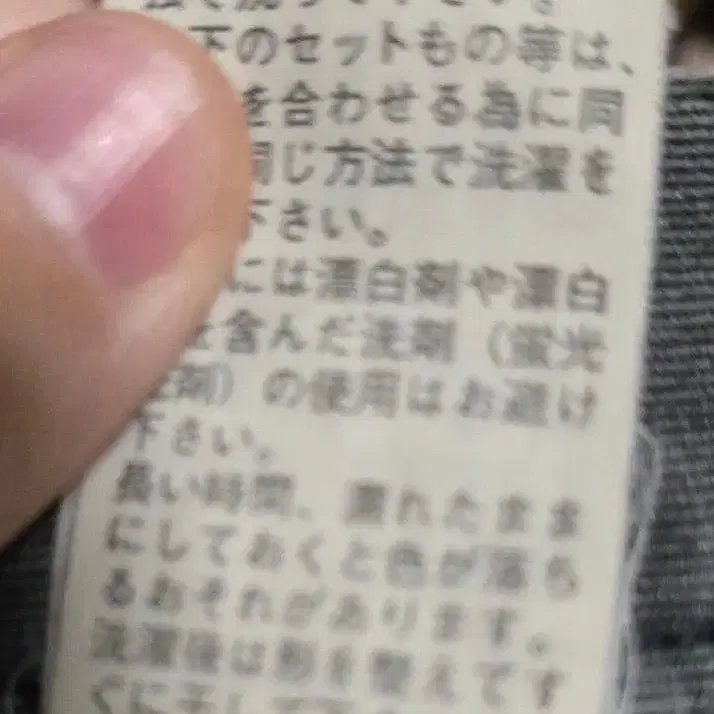 下のセットもの等は、
を合わせる為に同
同じ方法で洗濯を
下さい。
には漂白剤や漂白
を含んだ洗剤（蛍光
剤）の使用はお避け
下さい。
長い時間、濡れたまま
にしておくと色が落ち
るおそれがあります。
洗濯後は形を整えてす
ぐに干して下